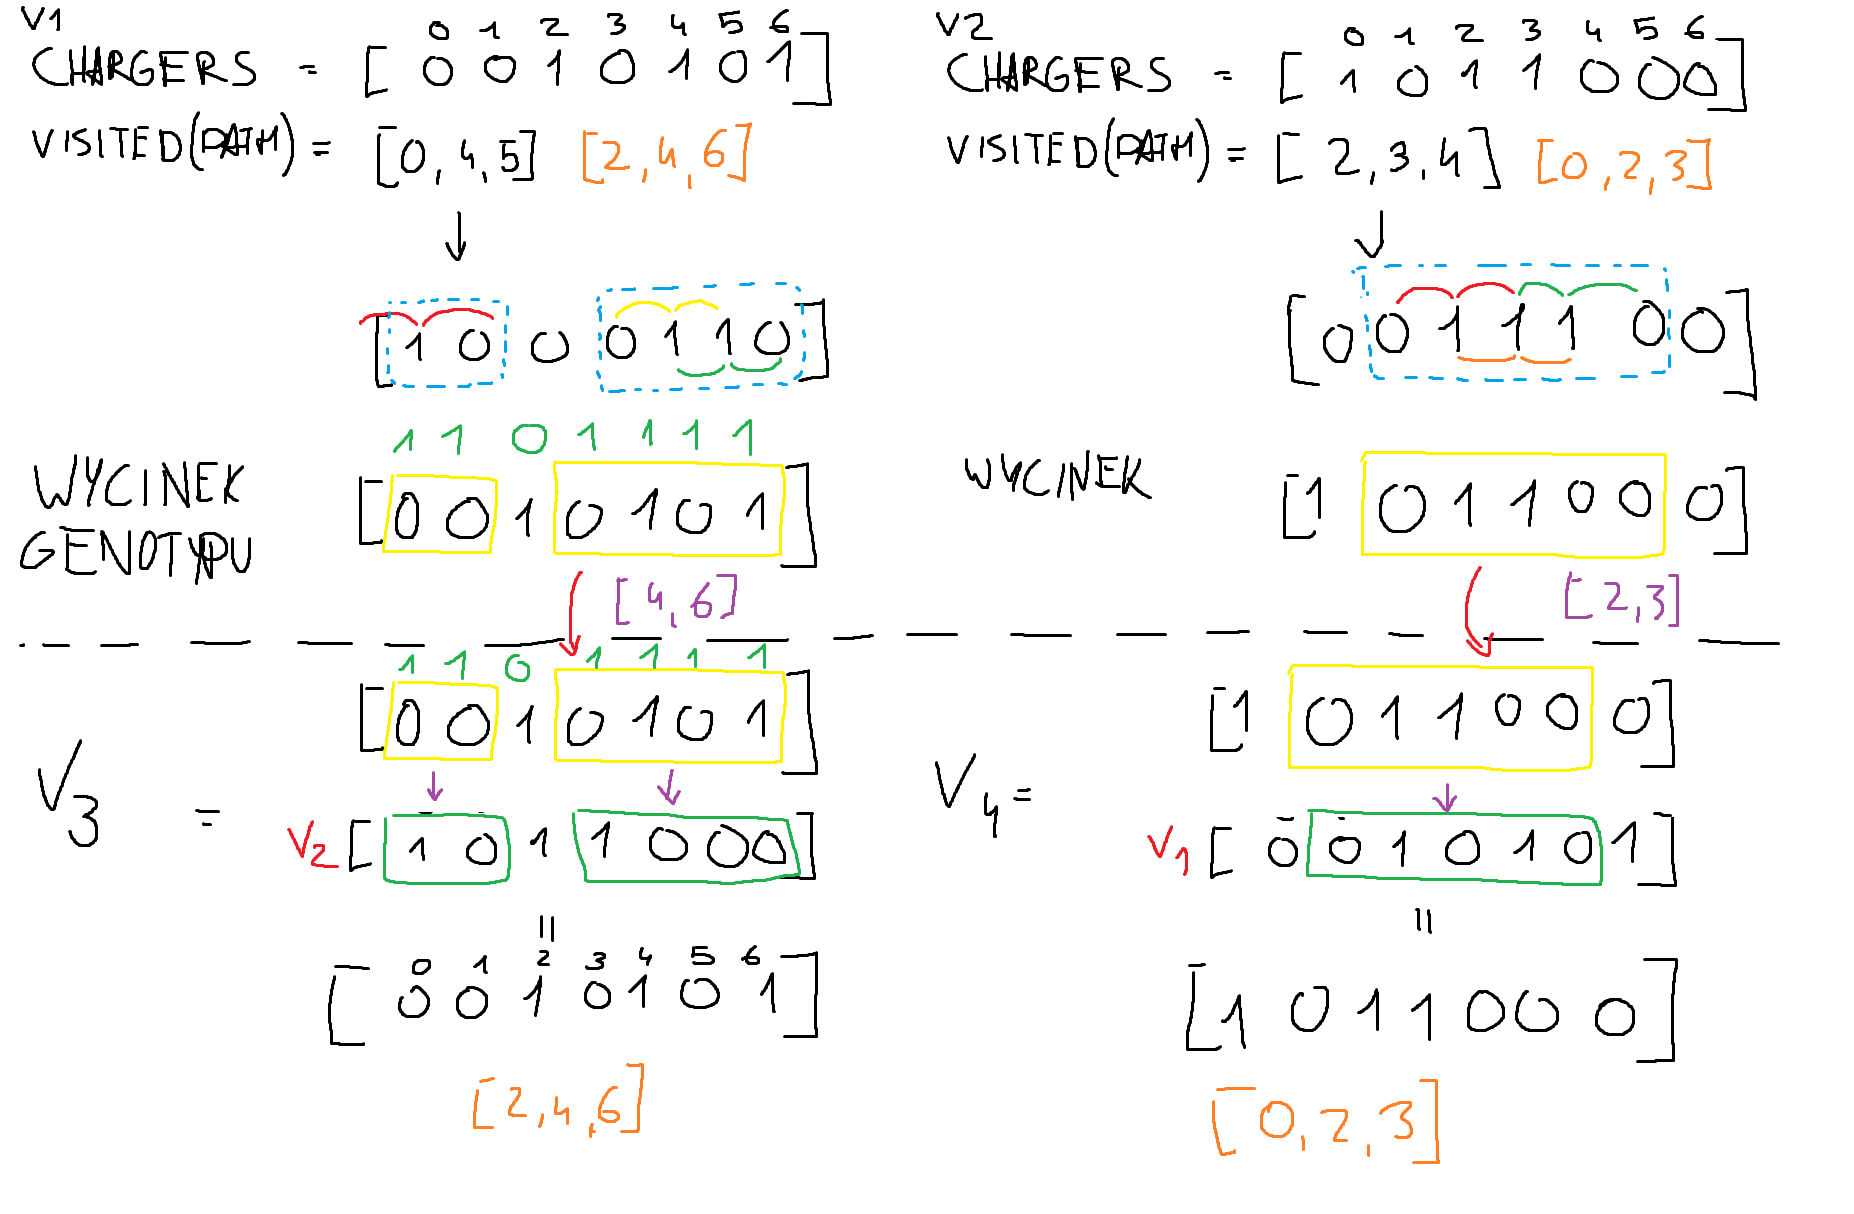 V1
0 1 2 3 4 5 6
CHARGERS = [ 0 0 1 0 1 0 1 ]
VISITED(PATH) = [0, 4, 5] [2, 4, 6]
[ 1 0 0 0 1 1 0 ]
1 1 0 1 1 1 1
WYCINEK
GENOTYPU
[ 0 0 1 0 1 0 1 ]
[4, 6]
1 1 0 1 1 1 1
[ 0 0 1 0 1 0 1 ]
V3 =
V2 [ 1 0 1 1 0 0 0 ]
=
0 1 2 3 4 5 6
[ 0 0 1 0 1 0 1 ]
[2, 4, 6]
V2
0 1 2 3 4 5 6
CHARGERS = [ 1 0 1 1 0 0 0 ]
VISITED(PATH) = [ 2, 3, 4 ] [0, 2, 3]
[ 0 0 1 1 1 0 0 ]
WYCINEK [ 1 0 1 1 0 0 0 ]
[ 2, 3 ]
[ 1 0 1 1 0 0 0 ]
V4 =
V1 [ 0 0 1 0 1 0 1 ]
=
[ 1 0 1 1 0 0 0 ]
[ 0, 2, 3 ]